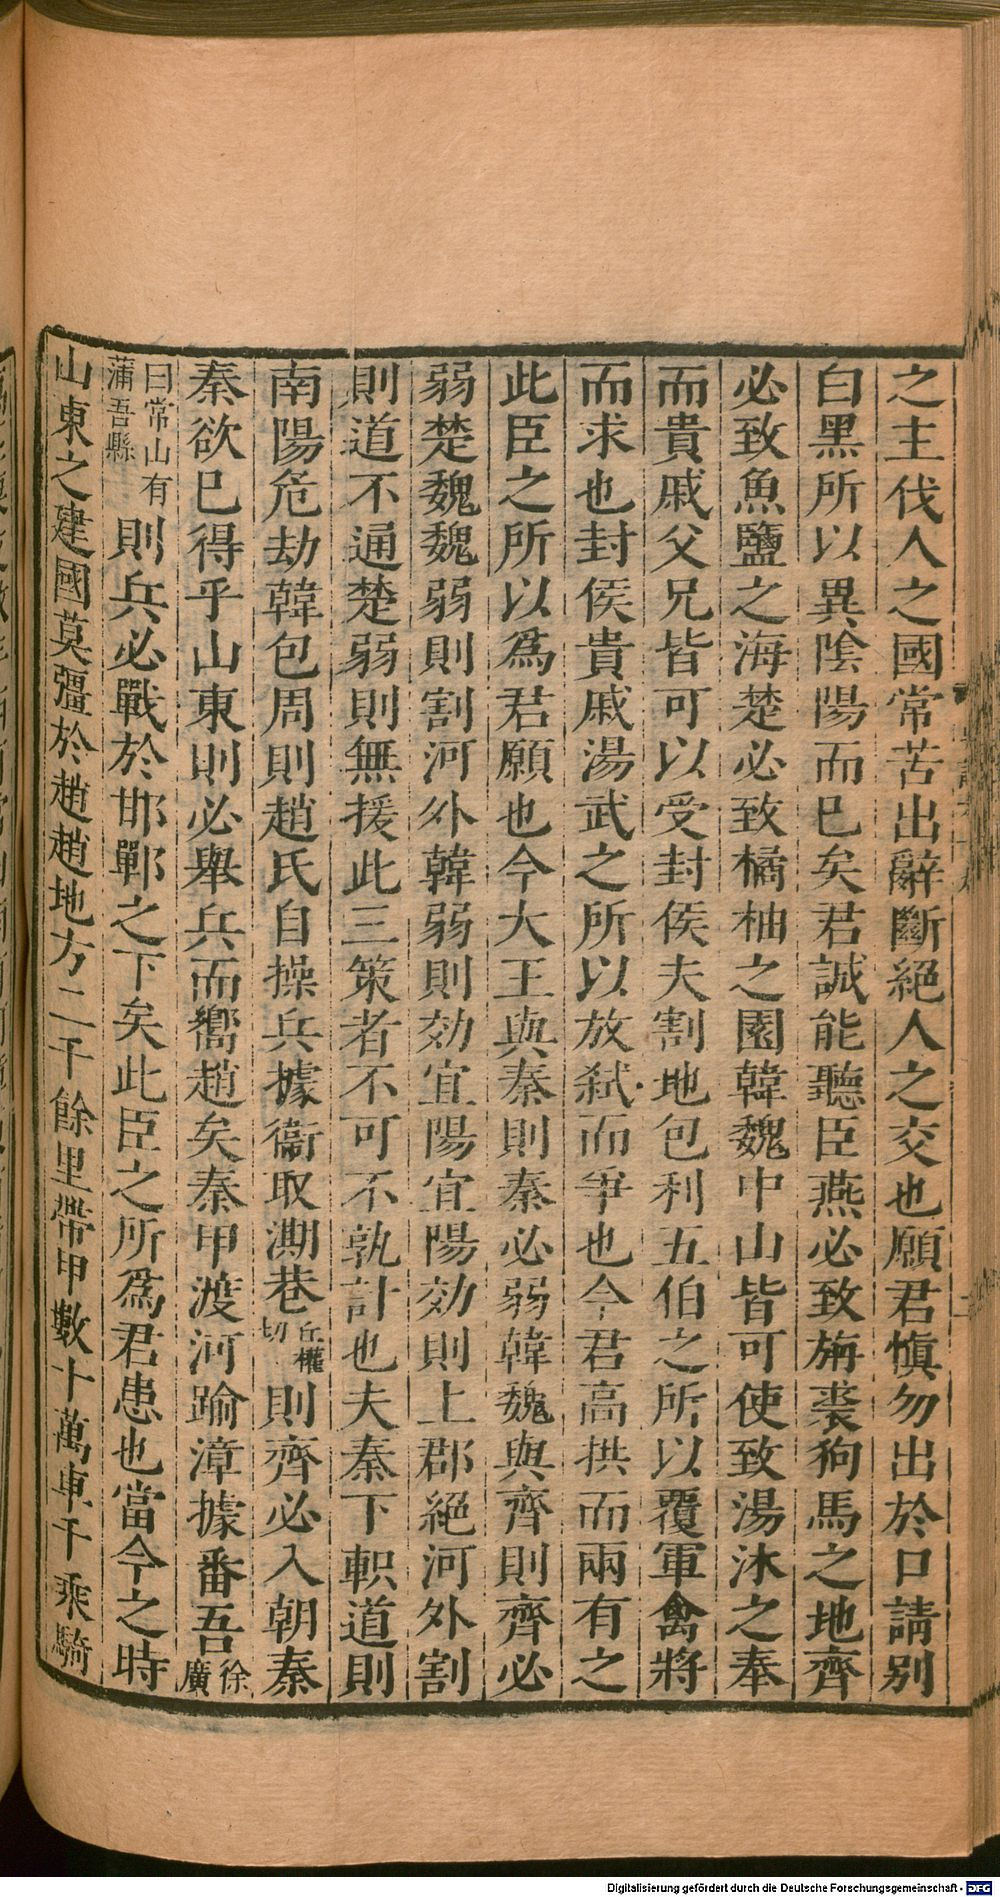 之主伐人之國常苦出辭斷絕人之交也願君愼勿出於口請别
白黑所以異陰陽而已矣君誠能聽臣燕必致旃裘狗馬之地齊
必致魚鹽之海楚必致橘柚之園韓魏中山皆可使致湯沐之奉
而貴戚父兄皆可以受封侯夫割地包利五伯之所以覆軍禽將
而求也封侯貴戚湯武之所以放弑而爭也今君高拱而兩有之
此臣之所以爲君願也今大王與秦則秦必弱韓魏與齊則齊必
弱楚魏魏弱則割河外韓弱則効宜陽宜陽効則上郡絕河外割
則道不通楚弱則無援此三策者不可不孰計也夫秦下軹道則
南陽危劫韓包周則趙氏自操兵據衞取淇卷丘權切則齊必入朝秦
秦欲已得乎山東則必舉兵而嚮趙矣秦甲渡河踰漳據番吾徐廣
曰常山有蒲吾縣則兵必戰於邯鄲之下矣此臣之所爲君患也當今之時
山東之建國莫彊於趙趙地方二千餘里帶甲數十萬車千乘騎
Digitalisierung gefördert durch die Deutsche Forschungsgemeinschaft - DFG